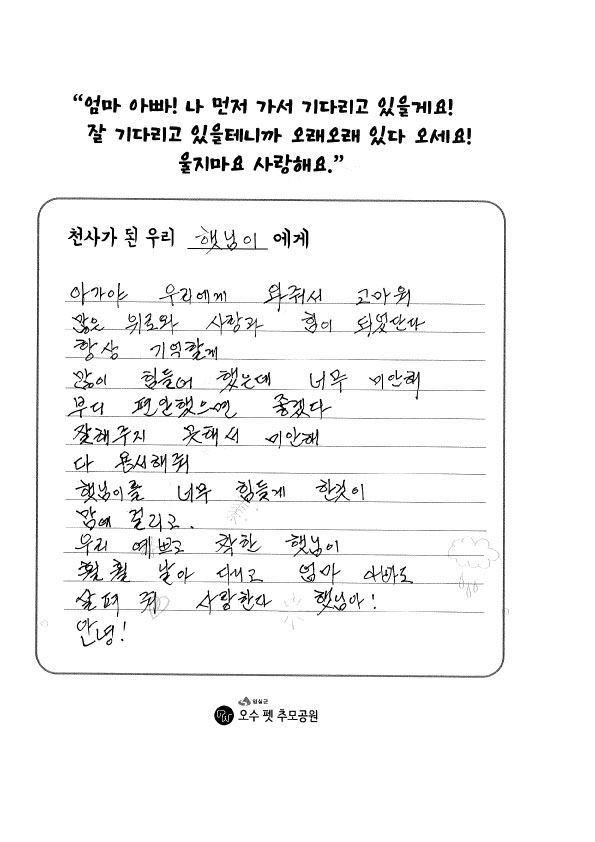 “엄마 아빠! 나 먼저 가서 기다리고 있을게요!
잘 기다리고 있을테니까 오래오래 있다 오세요!
울지마요 사랑해요.”
천사가 된 우리 햇님이 에게
아가야 우리에게 와줘서 고마워
많은 위로와 사랑과 힘이 되었단다
항상 기억할게
많이 힘들어 했는데 너무 미안해
부디 편안했으면 좋겠다
잘해주지 못해서 미안해
다 용서해줘
햇님이를 너무 힘들게 한것이
맘에 걸리고.
우리 예쁘고 착한 햇님이
훨훨 날아 다니고 엄마 아빠도
살펴 줘 사랑한다 햇님아!
안녕!
임실군
오수 펫 추모공원